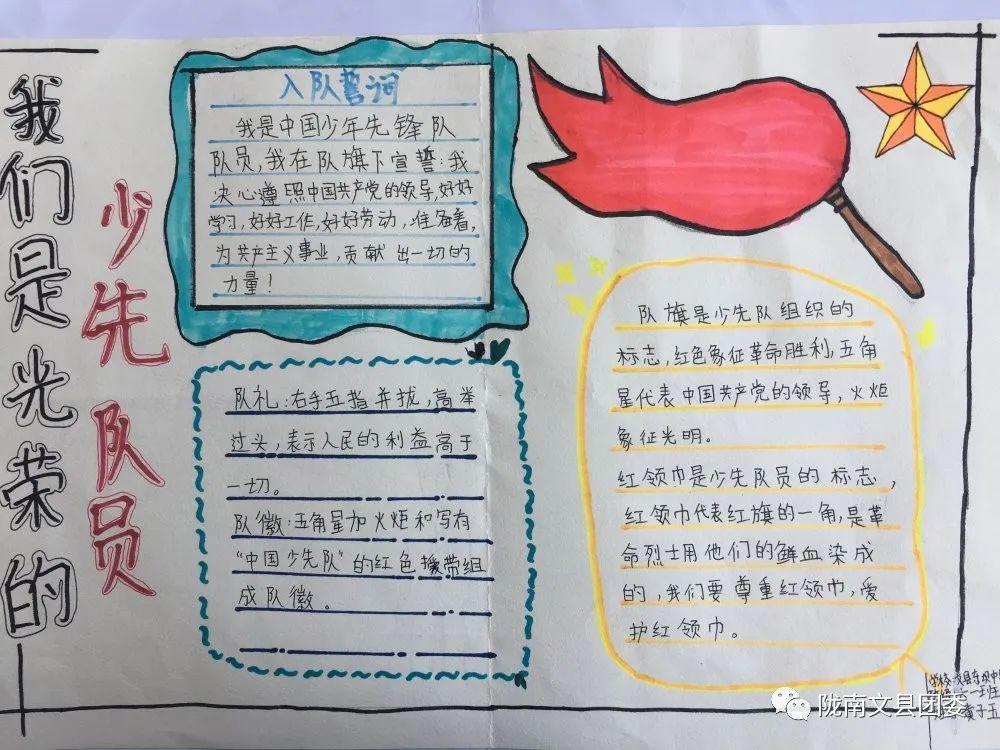 我们是光荣的
少先队员
入队誓词
我是中国少年先锋队
队员,我在队旗下宣誓:我
决心遵照中国共产党的领导,好好
学习,好好工作,好好劳动,准备着,
为共产主义事业,贡献出一切的
力量!
队礼:右手五指并拢,高举
过头,表示人民的利益高于
一切。
队徽:五角星加火炬和写有
“中国少先队”的红色绶带组
成队徽。
队旗是少先队组织的
标志,红色象征革命胜利,五角
星代表中国共产党的领导,火炬
象征光明。
红领巾是少先队员的标志,
红领巾代表红旗的一角,是革
命烈士用他们的鲜血染成
的,我们要尊重红领巾,爱
护红领巾。
学校:文县
陇南文县团委